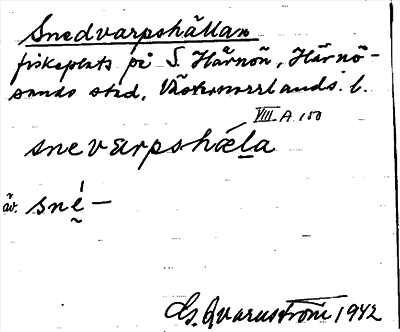 Snedvarpshällan
fiskeplats på S. Härnön, Härnö-
sands stad, Västernorrlands l.
VIII A 150
snevarpshæl̲a
äv. sné̱ —
Qvarnström 1942